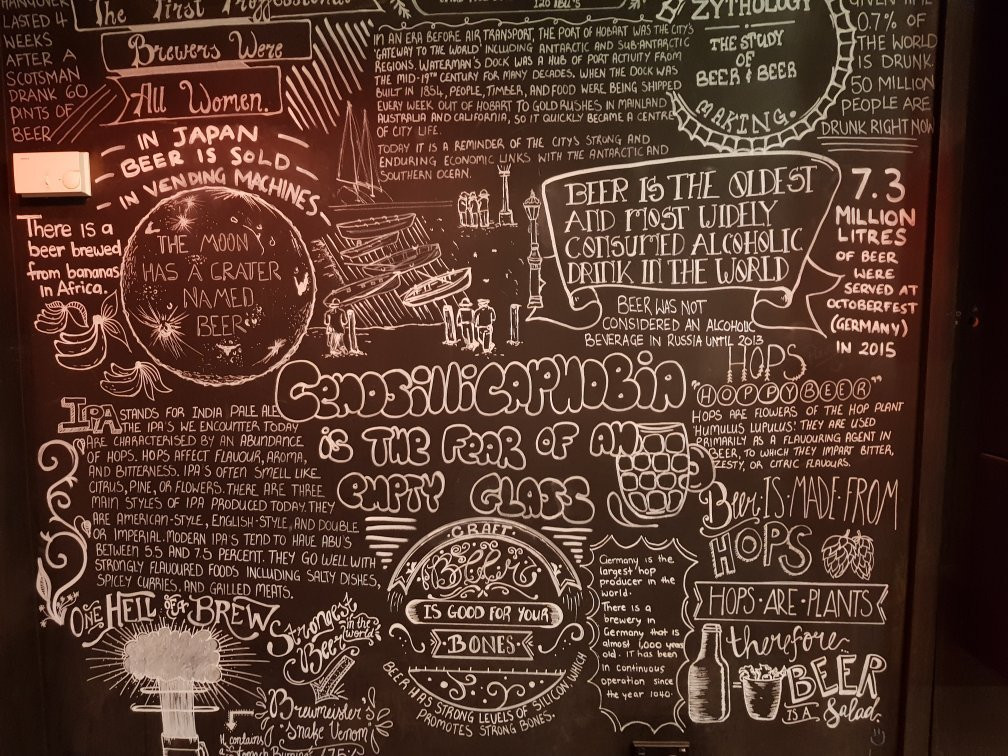 HANGOVER
LASTED 4
WEEKS
AFTER A
SCOTSMAN
DRANK 60
PINTS OF
BEER
The First Professional
Brewers Were
All Women.
120 IBU'S
IN AN ERA BEFORE AIR TRANSPORT, THE PORT OF HOBART WAS THE CITY'S
'GATEWAY TO THE WORLD' INCLUDING ANTARCTIC AND SUB-ANTARCTIC
REGIONS. WATERMAN'S DOCK WAS A HUB OF PORT ACTIVITY FROM
THE MID-19TH CENTURY FOR MANY DECADES. WHEN THE DOCK WAS
BUILT IN 1854, PEOPLE, TIMBER, AND FOOD WERE BEING SHIPPED
EVERY WEEK OUT OF HOBART TO GOLD RUSHES IN MAINLAND
AUSTRALIA AND CALIFORNIA, SO IT QUICKLY BECAME A CENTRE
OF CITY LIFE.
TODAY IT IS A REMINDER OF THE CITY'S STRONG AND
ENDURING ECONOMIC LINKS WITH THE ANTARCTIC AND
SOUTHERN OCEAN.
ZYTHOLOGY
THE STUDY
OF
BEER & BEER
MAKING.
GIVEN TIME
0.7% OF
THE WORLD
IS DRUNK.
50 MILLION
PEOPLE ARE
DRUNK RIGHT NOW
IN JAPAN
BEER IS SOLD
IN VENDING MACHINES
There is a
beer brewed
from bananas
In Africa.
THE MOON
HAS A CRATER
NAMED
BEER
BEER IS THE OLDEST
AND MOST WIDELY
CONSUMED ALCOHOLIC
DRINK IN THE WORLD
BEER WAS NOT
CONSIDERED AN ALCOHOLIC
BEVERAGE IN RUSSIA UNTIL 2013
7.3
MILLION
LITRES
OF BEER
WERE
SERVED AT
OCTOBERFEST
(GERMANY)
IN 2015
CENOSILLICAPHOBIA
IS THE FEAR OF AN
EMPTY GLASS
HOPS
"HOPPYBEER"
HOPS ARE FLOWERS OF THE HOP PLANT
HUMULUS LUPULUS! THEY ARE USED
PRIMARILY AS A FLAVOURING AGENT IN
BEER, TO WHICH THEY IMPART BITTER,
ZESTY, OR CITRIC FLAVOURS.
IPA STANDS FOR INDIA PALE ALE
THE IPA'S WE ENCOUNTER TODAY
ARE CHARACTERISED BY AN ABUNDANCE
OF HOPS. HOPS AFFECT FLAVOUR, AROMA,
AND BITTERNESS. IPA'S OFTEN SMELL LIKE
CITRUS, PINE, OR FLOWERS. THERE ARE THREE
MAIN STYLES OF IPA PRODUCED TODAY. THEY
ARE AMERICAN-STYLE, ENGLISH-STYLE, AND DOUBLE
OR IMPERIAL. MODERN IPA'S TEND TO HAVE ABU'S
BETWEEN 5.5 AND 7.5 PERCENT. THEY GO WELL WITH
STRONGLY FLAVOURED FOODS INCLUDING SALTY DISHES,
SPICEY CURRIES, AND GRILLED MEATS.
Beer·IS·MADE·FROM
HOPS
HOPS·ARE·PLANTS
therefore...
BEER
IS A Salad.
CRAFT
Beer
IS GOOD FOR YOUR
BONES.
BEER HAS STRONG LEVELS OF SILICON WHICH
PROMOTES STRONG BONES.
Germany is the
largest hop
producer in the
world.
There is a
brewery in
Germany that is
almost 1,000 years
old. It has been
in continuous
operation since
the year 1040.
ONE HELL OF A BREW
Strongest
Beer in the
world
Brewmeister's
'Snake Venom'
It contains